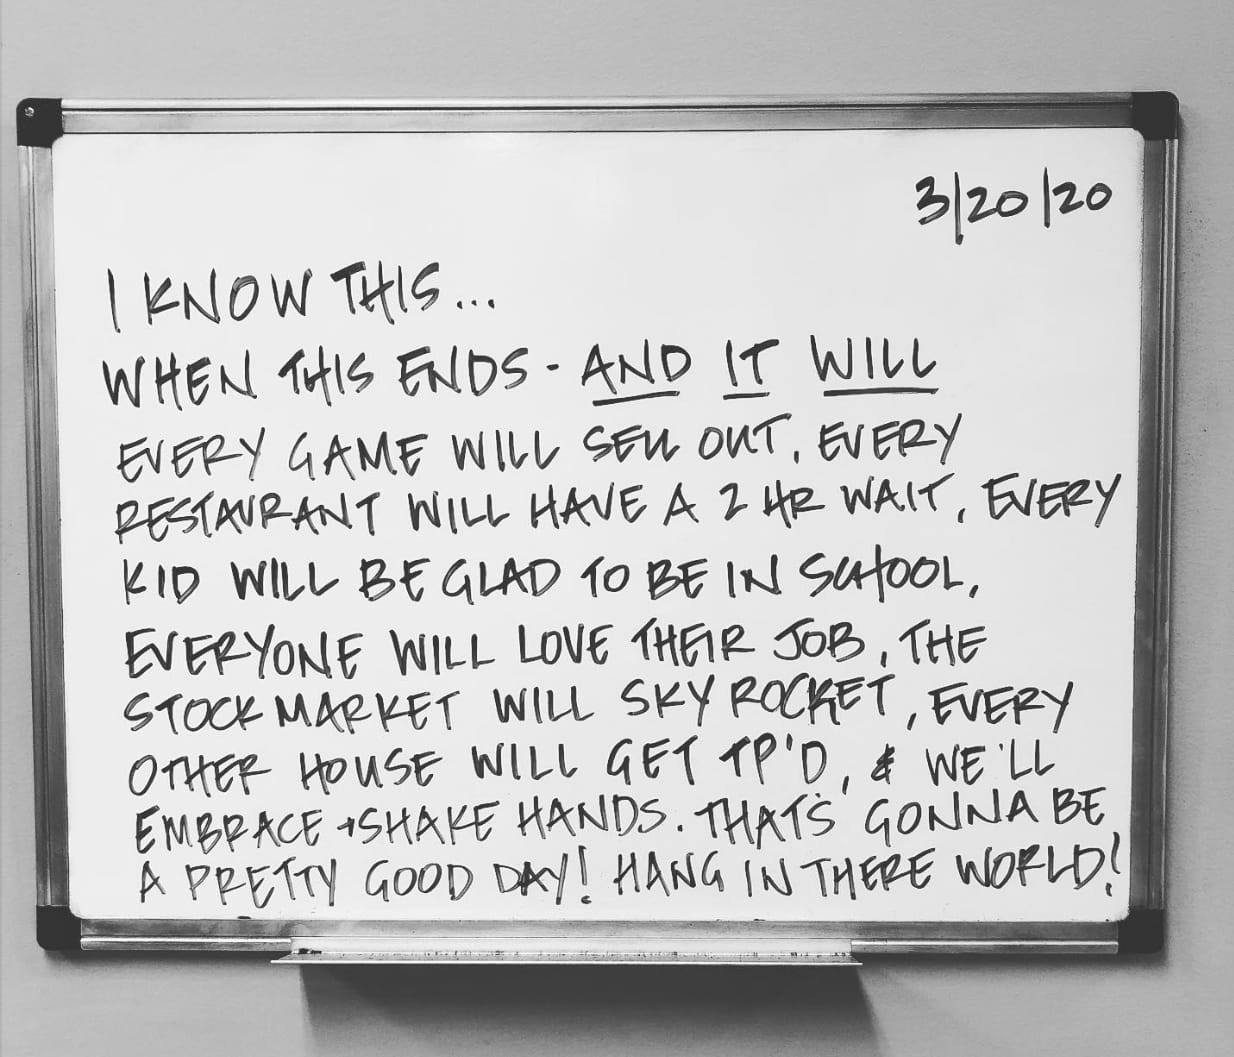 3/20/20
I KNOW THIS...
WHEN THIS ENDS - AND IT WILL
EVERY GAME WILL SELL OUT, EVERY
RESTAURANT WILL HAVE A 2 HR WAIT, EVERY
KID WILL BE GLAD TO BE IN SCHOOL,
EVERYONE WILL LOVE THEIR JOB, THE
STOCK MARKET WILL SKY ROCKET, EVERY
OTHER HOUSE WILL GET TP'D, & WE'LL
EMBRACE + SHAKE HANDS. THAT'S GONNA BE
A PRETTY GOOD DAY! HANG IN THERE WORLD!